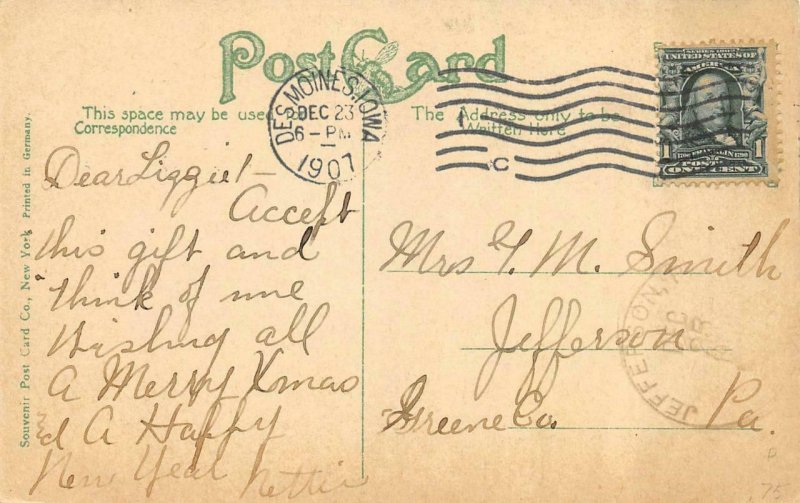 Post Card
This space may be used
Correspondence
The Address only to be
Written Here
DES MOINES, IOWA
DEC 23
6-PM
1907
C
SERIES 1902
UNITED STATES OF
AMERICA
1 FRANKLIN 1
POSTAGE
ONE CENT
Dear Lizzie! -
Accept
this gift and
think of me
Wishing all
A Merry Xmas
& A Happy
New Year Nettie
Mrs Y. M. Smith
Jefferson
Greene Co. Pa.
JEFFERSON,
DEC
Souvenir Post Card Co., New York Printed in Germany.
75